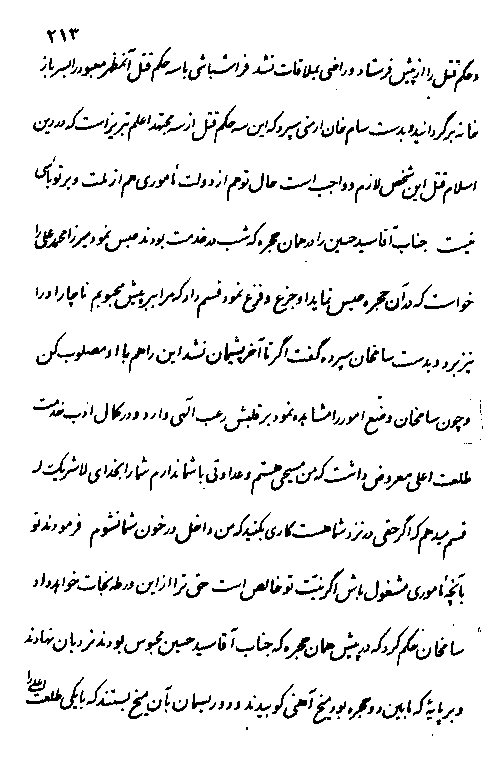 ۲۱۳
و حکم قتل را از پیش فرستاد و راضی بملاقات نشد فراشباشی با سه حکم قتل آنمظهر معبود را بسرباز
خانه برگردانید و بدست سام خان ارمنی سپرد که این سه حکم قتل از سه مجتهد اعلم تبریز است که در دین
اسلام قتل این شخص لازم و واجب است حال تو هم از دولت مأموری هم از ملت و بر تو بأسی
نیست جناب آقا سید حسین را در همان حجره که شب در خدمت بودند حبس نمود میرزا محمد علی را
خواست که در آن حجره حبس نماید او جزع و فزع نمود قسم داد که مرا ببر پیش محبوبم ناچار او را
نیز برد و بدست سامخان سپرد و گفت اگر تا آخر پشیمان نشد این را هم با او مصلوب کن
و چون سامخان وضع امور را مشاهده نمود بر قلبش رعب الهی وارد و در کمال ادب خدمت
طلعت اعلی معروض داشت که من مسیحی هستم و عداوتی با شما ندارم شما را بخدای لا شریک له
قسم میدهم که اگر حقی در نزد شما هست کاری بکنید که من داخل در خون شما نشوم فرمودند تو
بآنچه مأموری مشغول باش اگر نیت تو خالص است حق ترا از این ورطه نجات خواهد داد
سامخان حکم کرد که در پیش همان حجره که جناب آقا سید حسین محبوس بودند نردبان نهادند
و بر پایهٔ که مابین دو حجره بود میخ آهنی کوبیدند و دو ریسمان بآن میخ بستند که با یکی طلعت اعلی را